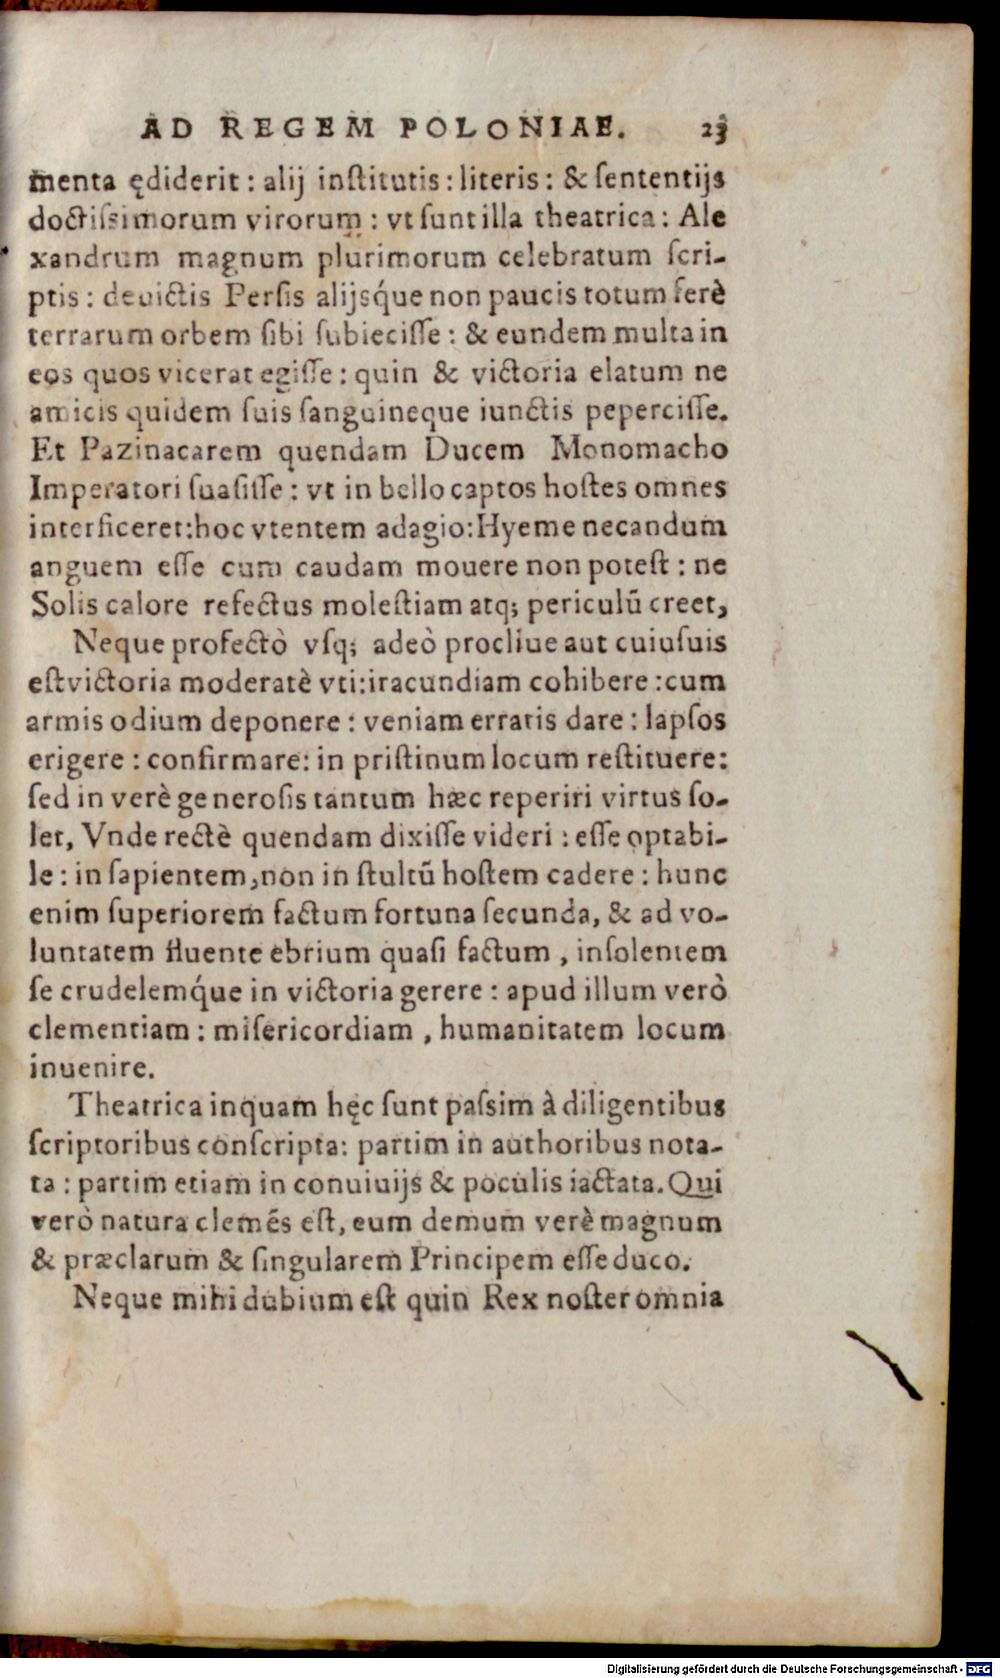 AD REGEM POLONIAE. 23
menta ędiderit : alij institutis : literis : & sententijs
doctissimorum virorum : vt sunt illa theatrica : Ale
xandrum magnum plurimorum celebratum scri-
ptis : deuictis Persis alijsq́ue non paucis totum ferè
terrarum orbem sibi subiecisse : & eundem multa in
eos quos vicerat egisse : quin & victoria elatum ne
amicis quidem suis sanguineque iunctis pepercisse.
Et Pazinacarem quendam Ducem Monomacho
Imperatori suasisse : vt in bello captos hostes omnes
interficeret:hoc vtentem adagio:Hyeme necandum
anguem esse cum caudam mouere non potest : ne
Solis calore refectus molestiam atq; periculū creet,
Neque profectò vsq; adeò procliue aut cuiusuis
est victoria moderatè vti:iracundiam cohibere :cum
armis odium deponere : veniam erratis dare : lapsos
erigere : confirmare: in pristinum locum restituere:
sed in verè generosis tantum hæc reperiri virtus so-
let, Vnde rectè quendam dixisse videri : esse optabi-
le : in sapientem,non in stultū hostem cadere : hunc
enim superiorem factum fortuna secunda, & ad vo-
luntatem fluente ebrium quasi factum , insolentem
se crudelemq́ue in victoria gerere : apud illum verò
clementiam : misericordiam , humanitatem locum
inuenire.
Theatrica inquam hęc sunt passim à diligentibus
scriptoribus conscripta: partim in authoribus nota-
ta : partim etiam in conuiuijs & poculis iactata. Qui
verò natura clemẽs est, eum demum verè magnum
& præclarum & singularem Principem esse duco.
Neque mihi dubium est quin Rex noster omnia
Digitalisierung gefördert durch die Deutsche Forschungsgemeinschaft - DFG